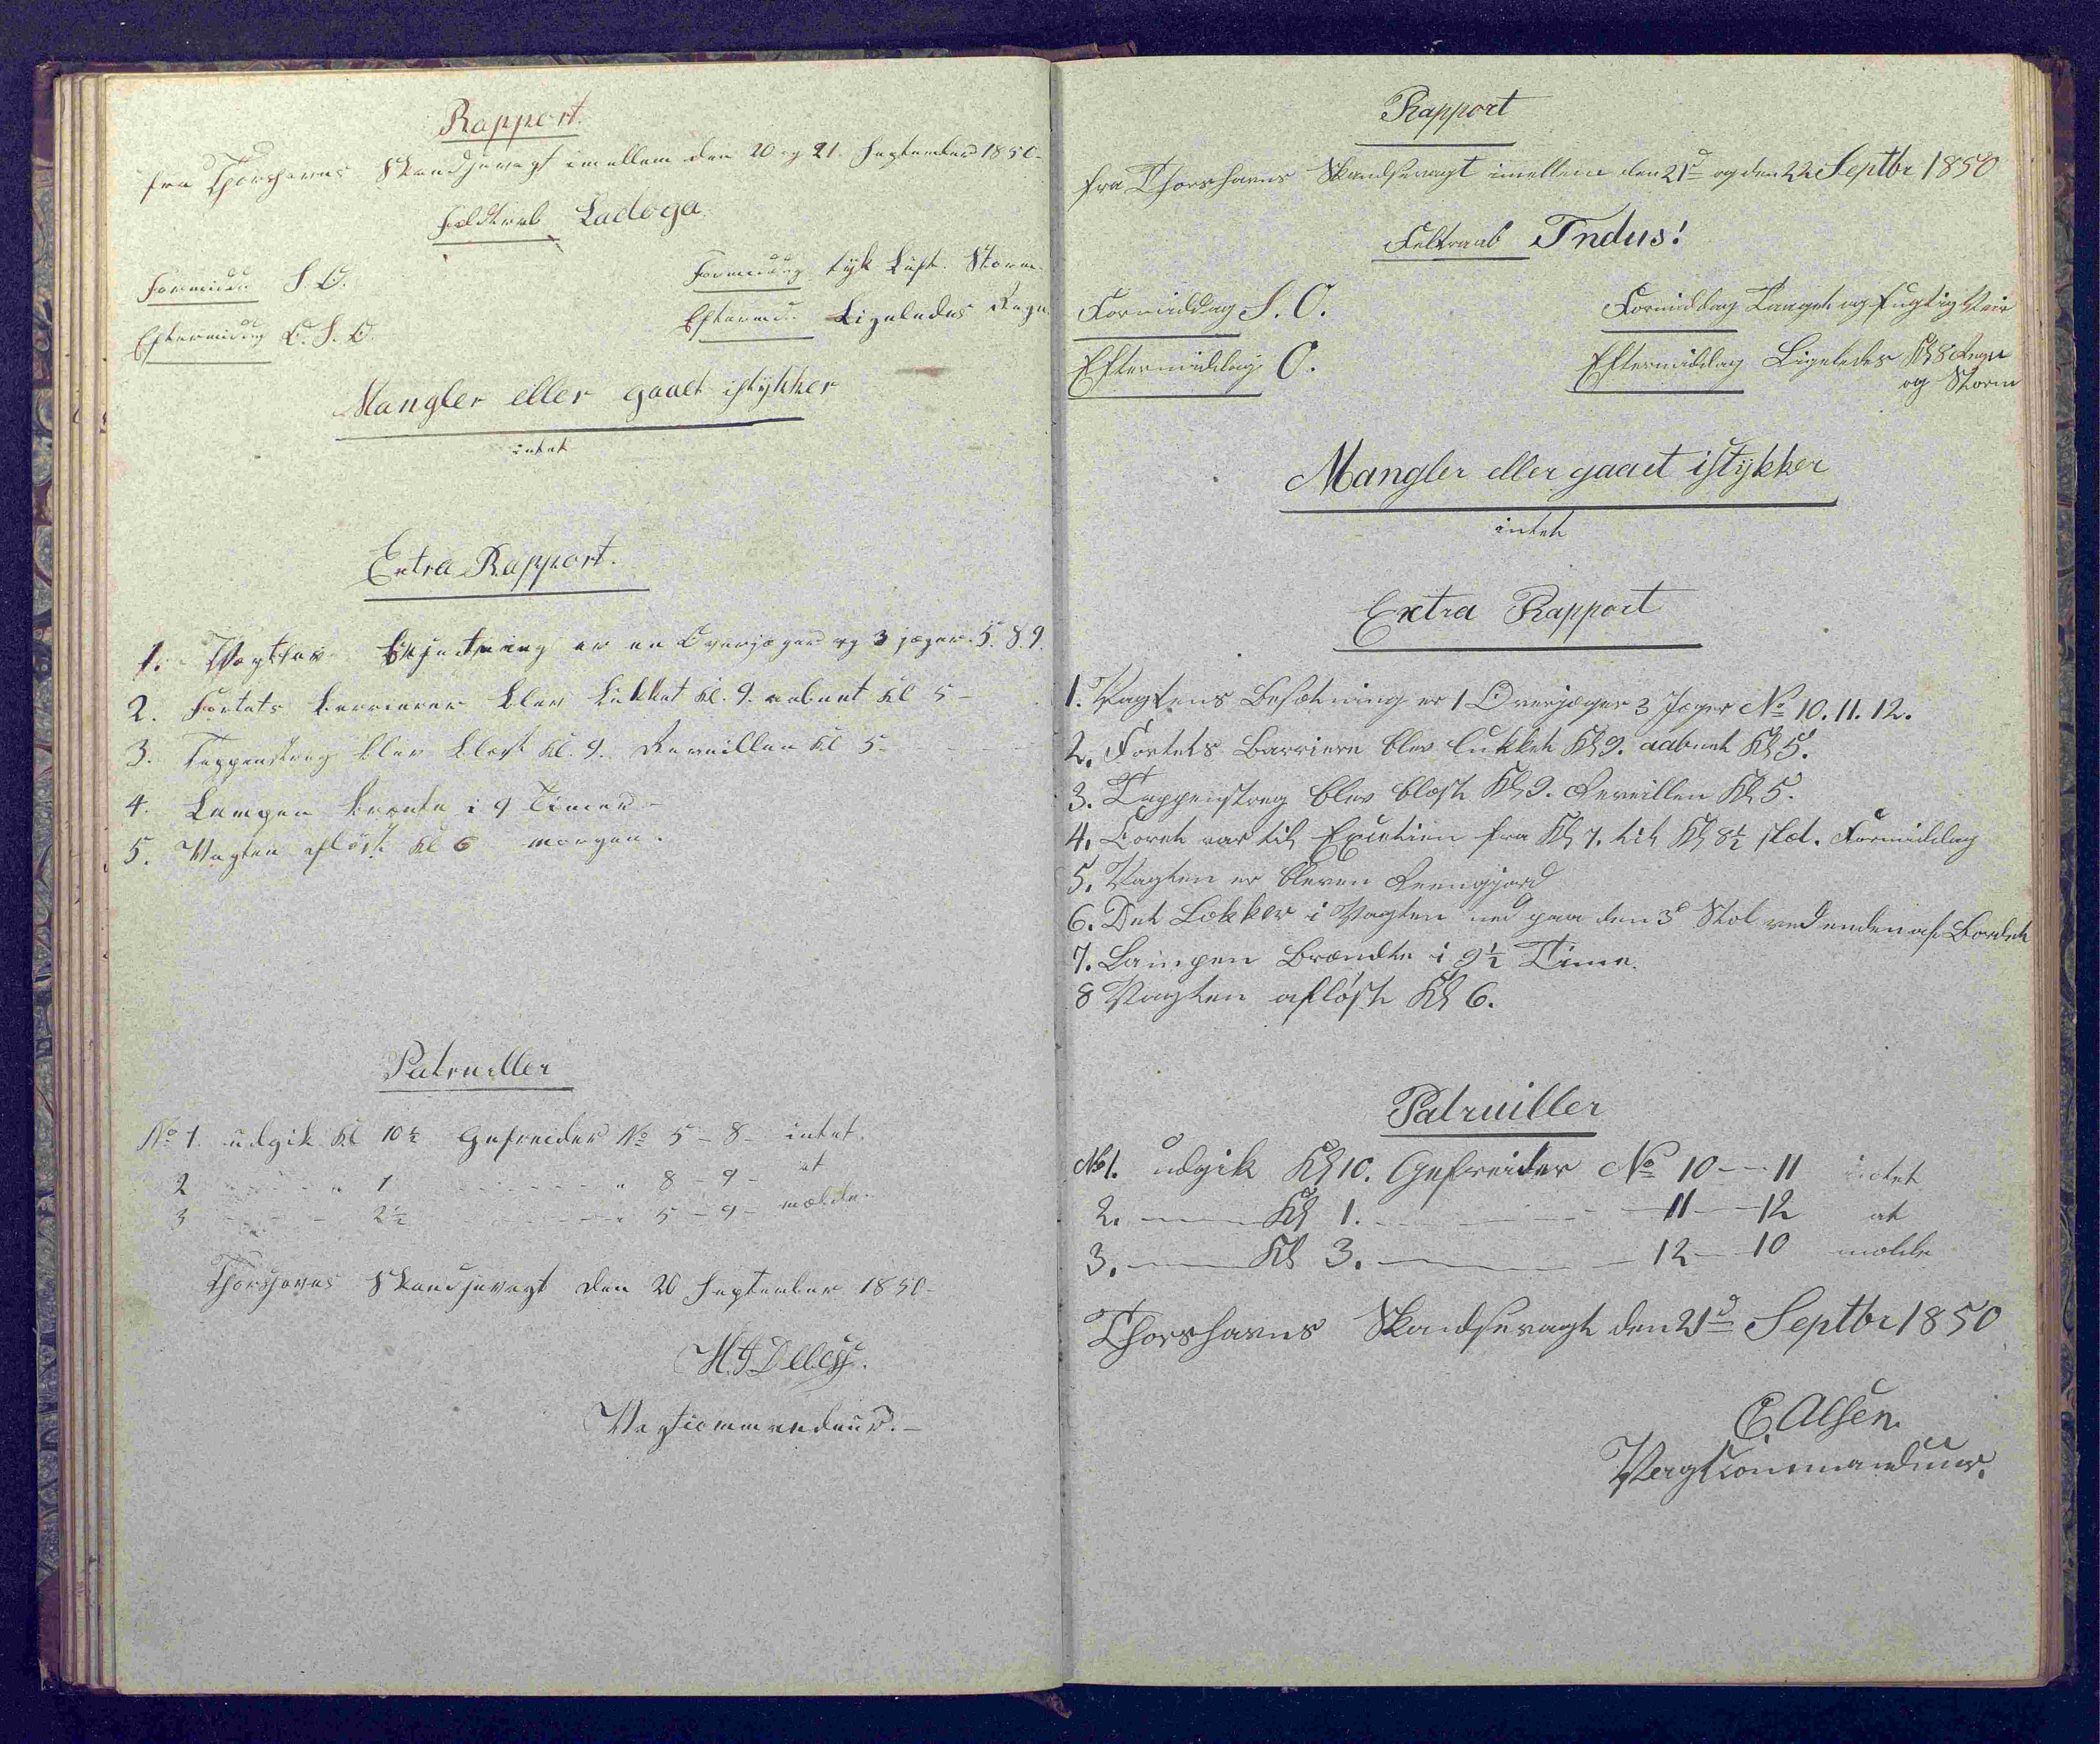 Rapport.
fra Thorshavns Skandsevagt imellem den 20 og 21. September 1850-
Feldtrab Ladoga.
Formidd. S. O.
Formiddag tyk Luft. Storm.
Eftermiddag O. S. O.
Eftermid. Ligeledes Regn
Mangler eller gaaet istykker
intet
Extra Rapport.
1. Besætning er en Overjæger og 3 jæger. 5. 8. 9.
2. Fortets barrierer blev lukket Kl. 9. aabnet Kl 5-
3. Tappenstreg blev blæst Kl. 9. Reveillen Kl 5-
4. Lampen brænte i 9 Timer-
5. Vagten afløst Kl 6 morgen.
Patruiller
No 1. udgik Kl 10½ Gefreider No 5-8- intet.
2 " 1 " 8-9- at
3 2½ " 5-9- mælde.
Thorshavns Skandsevagt den 20 September 1850-
Vagtcommandeur.-
Rapport
fra Thorshavns Skandsevagt imellem den 21d og den 22 Septbr 1850
Feltraab Indus!
Formiddag S. O.
Formiddag Taaget og fugtig Veir
Eftermiddag O.
Eftermiddag Ligeledes Kl 8 Regn
og Storm
Mangler eller gaaet istykker
intet
Extra Rapport
1. Vagtens Besætning er 1 Overjæger 3 Jæger No 10. 11. 12.
2. Fortets Barriere blev lukket Kl 9. aabnet Kl 5.
3. Tappenstreg blev blæst Kl 9. Reveillen Kl 5.
4. Coret var til Exicetien fra Kl 7. til Kl 8½ slet. Formiddag
5. Vagten er bleven Reengjord
6. Det Lekker i Vagten ned paa den 3d Stol ved enden af Bordet
7. Lampen Brændte i 9½ Time.
8 Vagten afløst Kl 6.
Patruiller
No 1. udgik Kl 10. Gefreider No 10--11 intet
2. ---- Kl 1. ---- 11--12 at
3. ---- Kl 3. ---- 12--10 melde
Thorshavns Skandsevagt den 21d Septbr 1850
C. Olsen.
Vagtkommandeur.